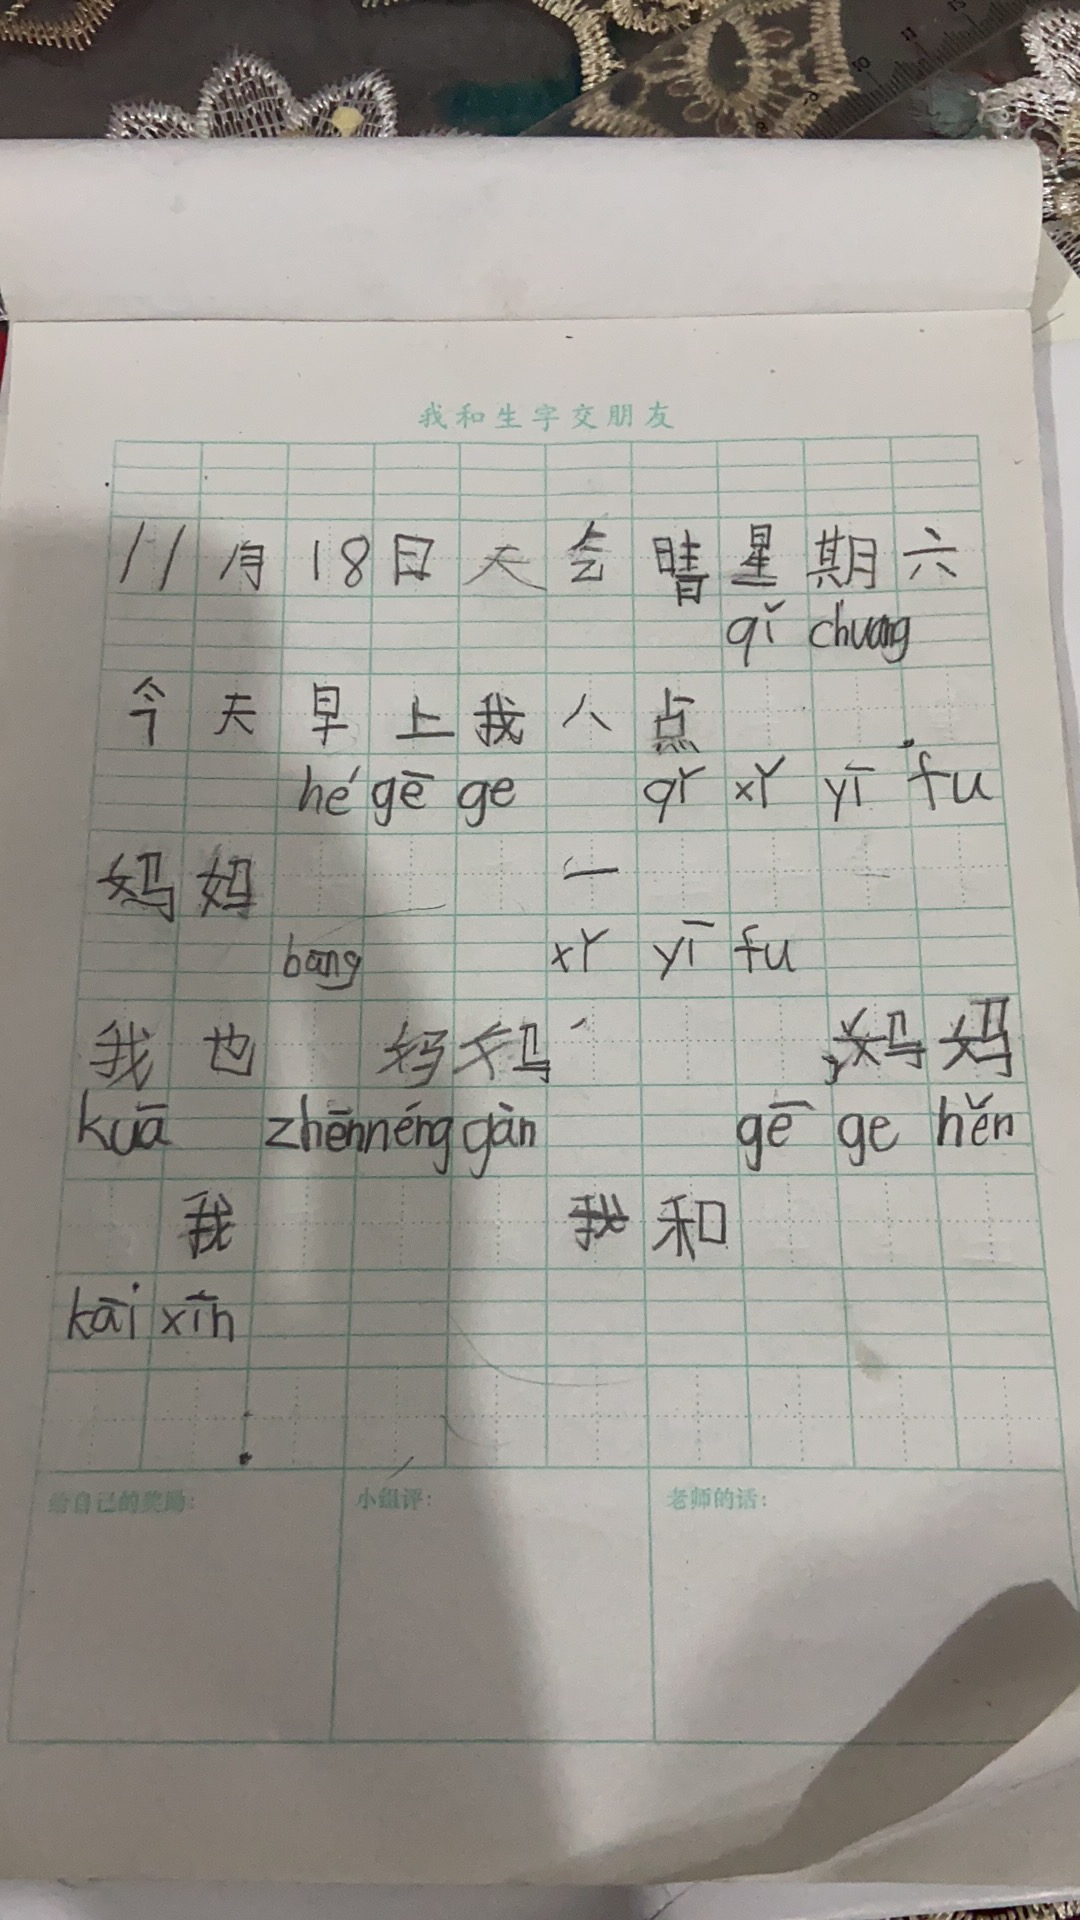 我和生字交朋友
11月18日天会晴星期六
qǐ chuang
今天早上我八点
hé gē ge qǐ xǐ yī fu
妈妈 一
bang xǐ yī fu
我也 妈妈 妈妈
kuā zhēn néng gàn gē ge hěn
我 我和
kāi xīn
给自己的奖励: 小组评: 老师的话: